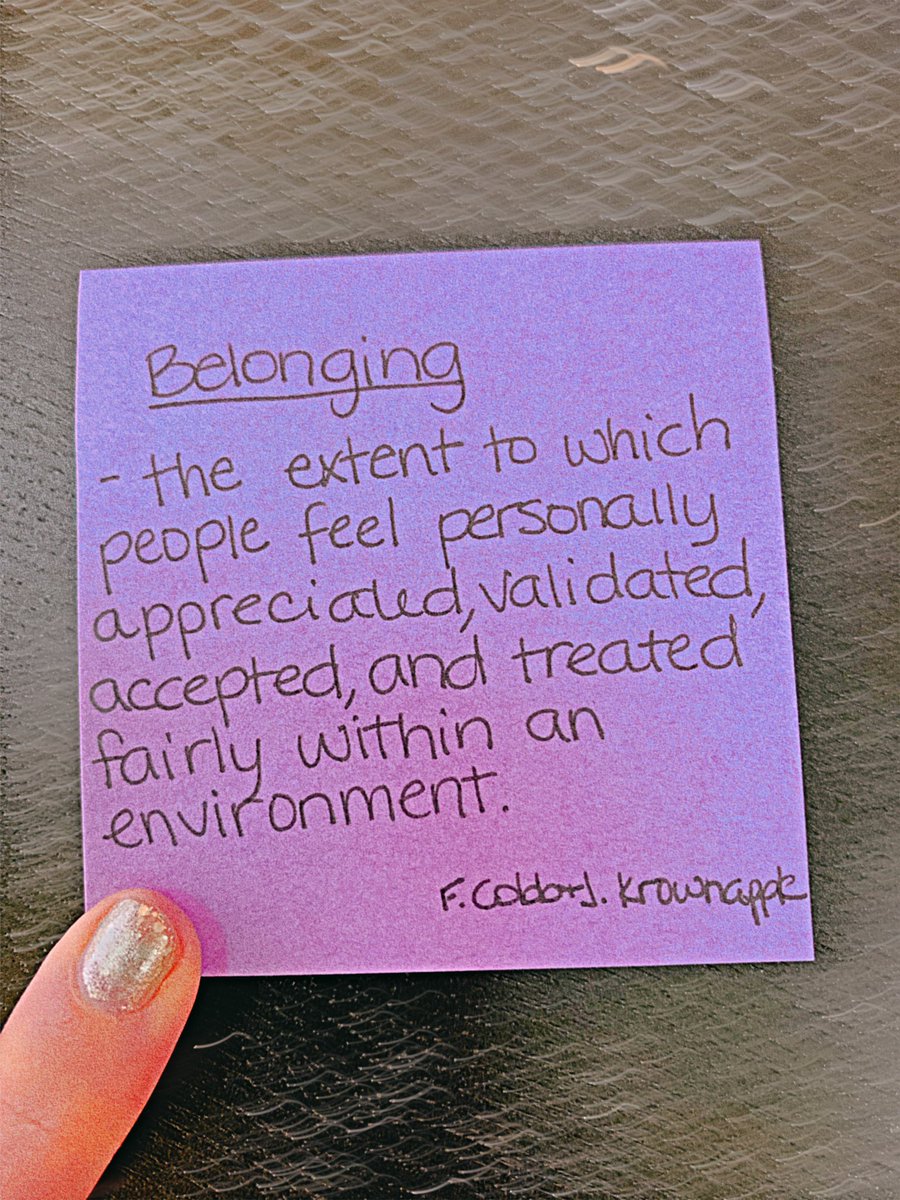 Belonging
- the extent to which
people feel personally
appreciated, validated,
accepted, and treated
fairly within an
environment.
F. Cobb+J. Krownapple